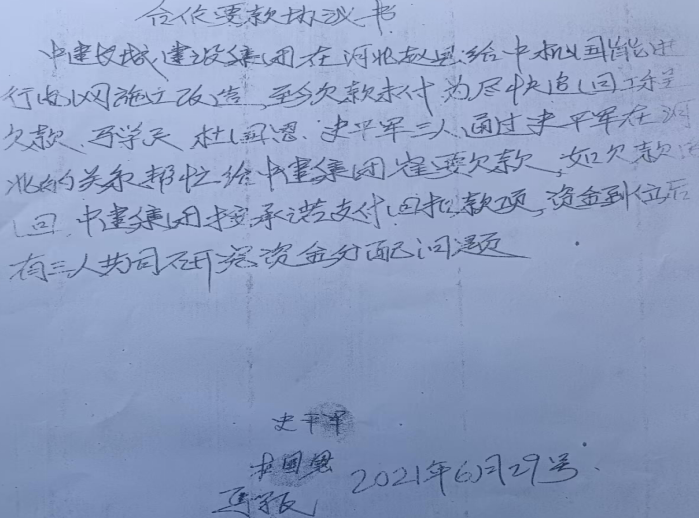 合作要款协议书
中建长城建设集团在河北赵县给中机国能进
行电网施工改造,至今欠款未付为尽快追回工程
欠款,马学民 杜国恩、史平军三人,通过史平军在河
北的关系帮忙给中建集团崔要欠款,如欠款
回,中建集团按承诺支付回扣款项,资金到位后
有三人共同研究资金分配问题
史平军
杜国恩
2021年6月29号.